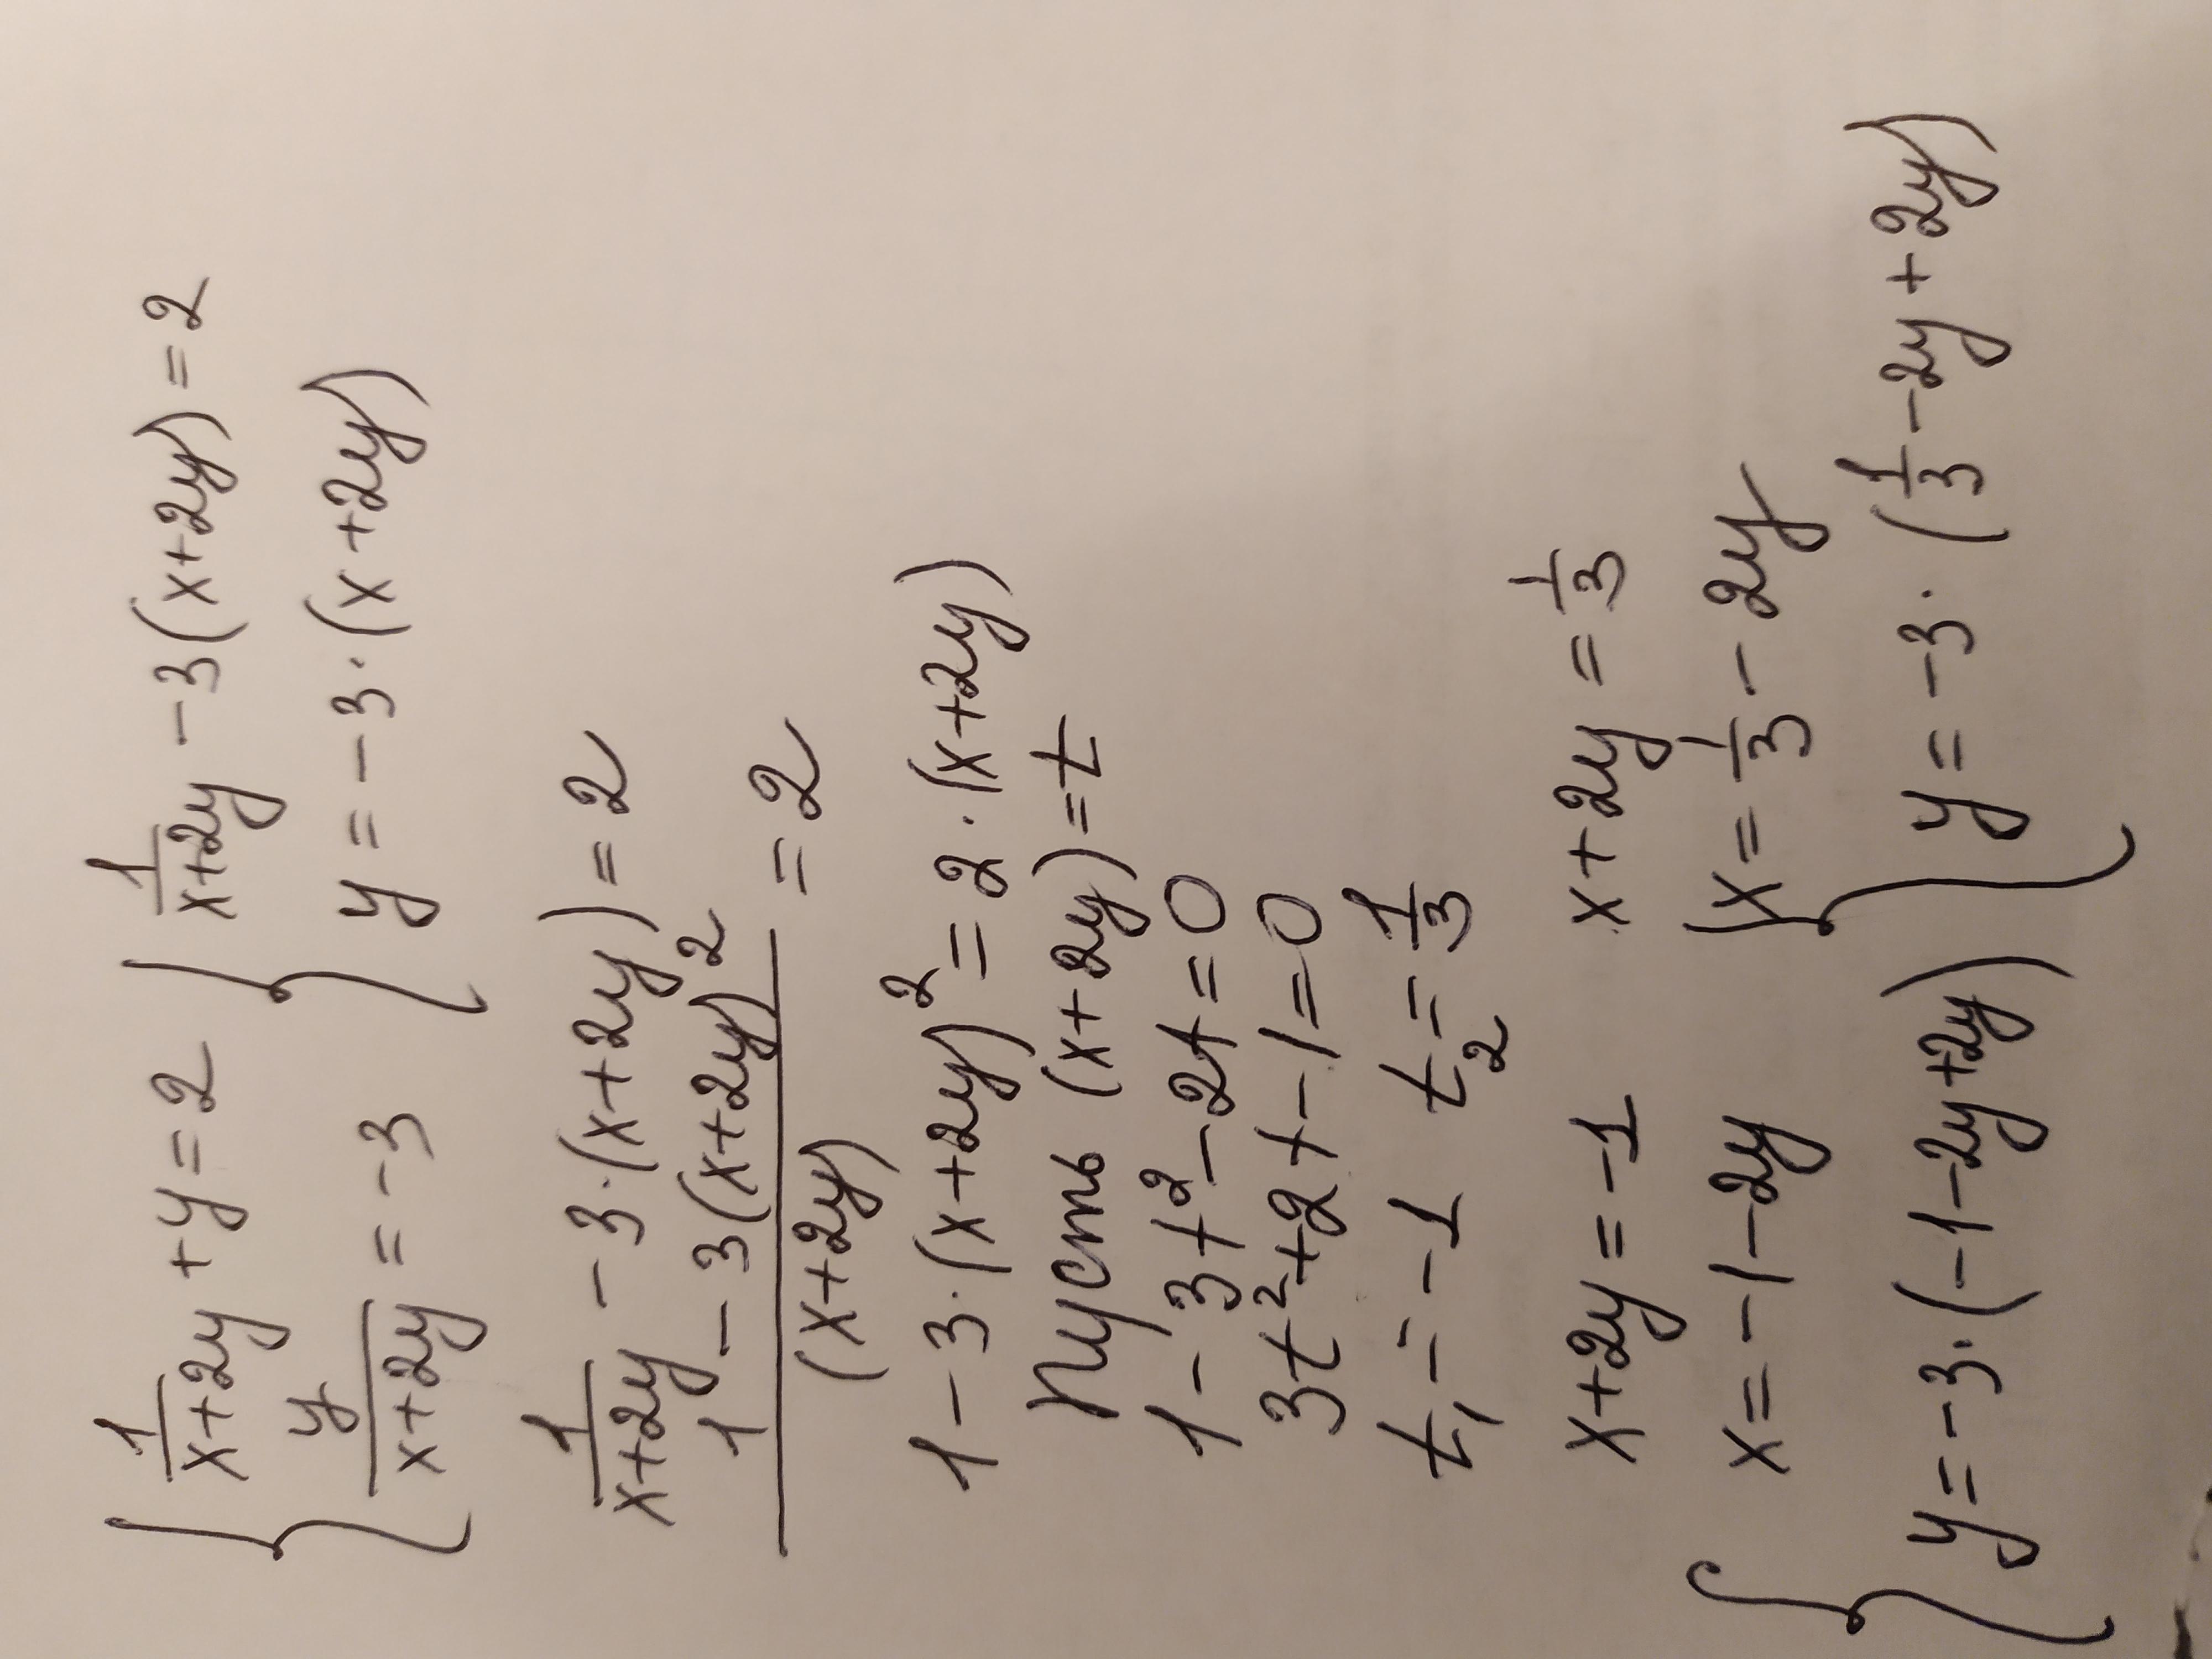 { 1/(x+2y) + y = 2 { 1/(x+2y) - 3(x+2y) = 2
y/(x+2y) = -3 y = -3·(x+2y)
1/(x+2y) - 3·(x+2y) = 2
1 - 3(x+2y)²/(x+2y) = 2
1 - 3·(x+2y)² = 2·(x+2y)
Пусть (x+2y) = t
1 - 3t² - 2t = 0
3t² + 2t - 1 = 0
t₁ = -1 t₂ = 1/3
x+2y = -1 x+2y = 1/3
{ x = -1-2y { x = 1/3 - 2y
y = -3·(-1-2y+2y) y = -3·(1/3-2y+2y)